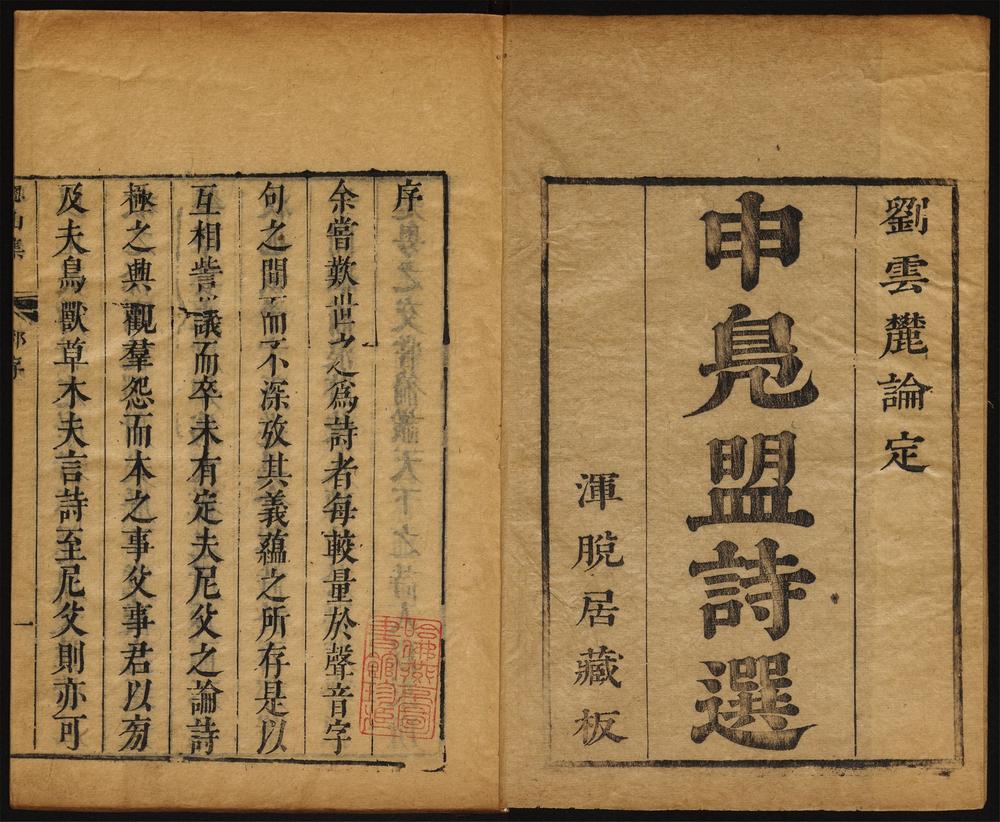 劉雲麓論定
申鳧盟詩選
渾脫居藏板
序
余嘗歎世之爲詩者每較量於聲音字
句之間而不深攷其義蘊之所存是以
互相訾議而卒未有定夫尼父之論詩
極之興觀羣怨而本之事父事君以旁
及夫鳥獸草木夫言詩至尼父則亦可
山集 序 一
哈佛燕京圖書館珍藏印